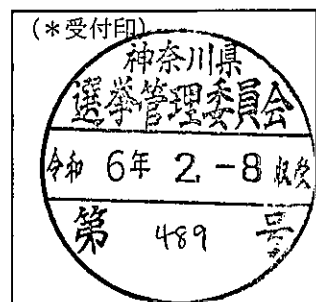 (*受付印)
神奈川県
選挙管理委員会
令和 6年 2-8 収受
第 489 号